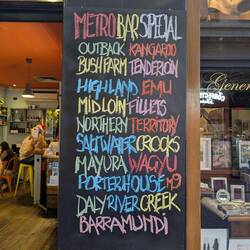 METRO BAR SPECIAL
OUTBACK KANGAROO
BUSH FARM TENDERLOIN
HIGHLAND EMU
MIDLOIN FILLETS
NORTHERN TERRITORY
SALTWATER CROCKS
MAYURA WAGYU
PORTERHOUSE M9
DALY RIVER CREEK
BARRAMUNDI